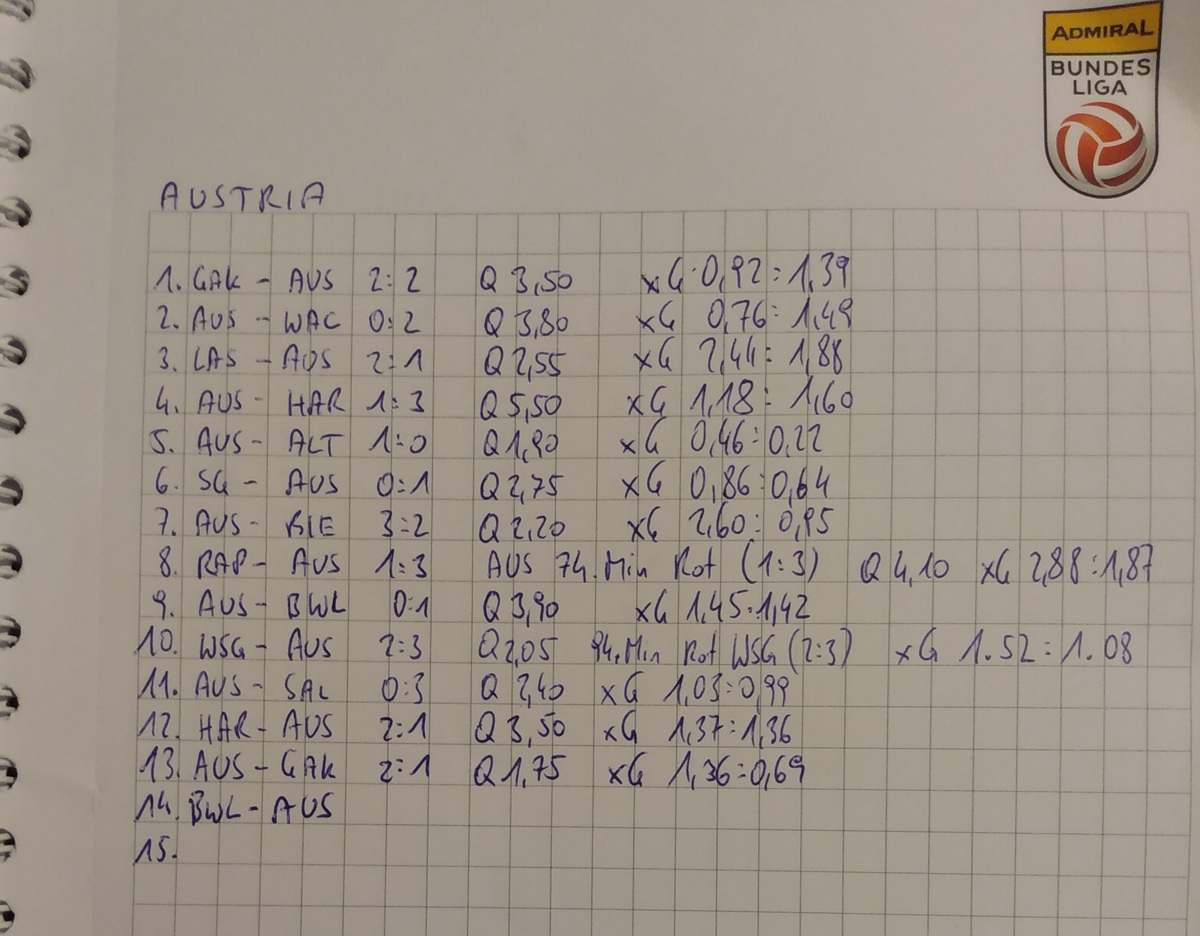 ADMIRAL
BUNDES
LIGA
AUSTRIA
1. GAK - AUS 2:2 Q 3,50 xG 0,92:1,39
2. AUS - WAC 0:2 Q 3,80 xG 0,76:1,49
3. LAS - AUS 2:1 Q 2,55 xG 2,44:1,88
4. AUS - HAR 1:3 Q 5,50 xG 1,18:1,60
5. AUS - ALT 1:0 Q 1,90 xG 0,46:0,22
6. SG - AUS 0:1 Q 2,75 xG 0,86:0,64
7. AUS - BIE 3:2 Q 2,20 xG 2,60:0,95
8. RAP - AUS 1:3 AUS 74. Min Rot (1:3) Q 4,10 xG 2,88:1,87
9. AUS - BWL 0:1 Q 3,90 xG 1,45:1,42
10. WSG - AUS 2:3 Q 2,05 94. Min Rot WSG (2:3) xG 1.52:1.08
11. AUS - SAL 0:3 Q 2,40 xG 1,03:0,99
12. HAR - AUS 2:1 Q 3,50 xG 1,37:1,36
13. AUS - GAK 2:1 Q 1,75 xG 1,36:0,69
14. BWL - AUS
15.